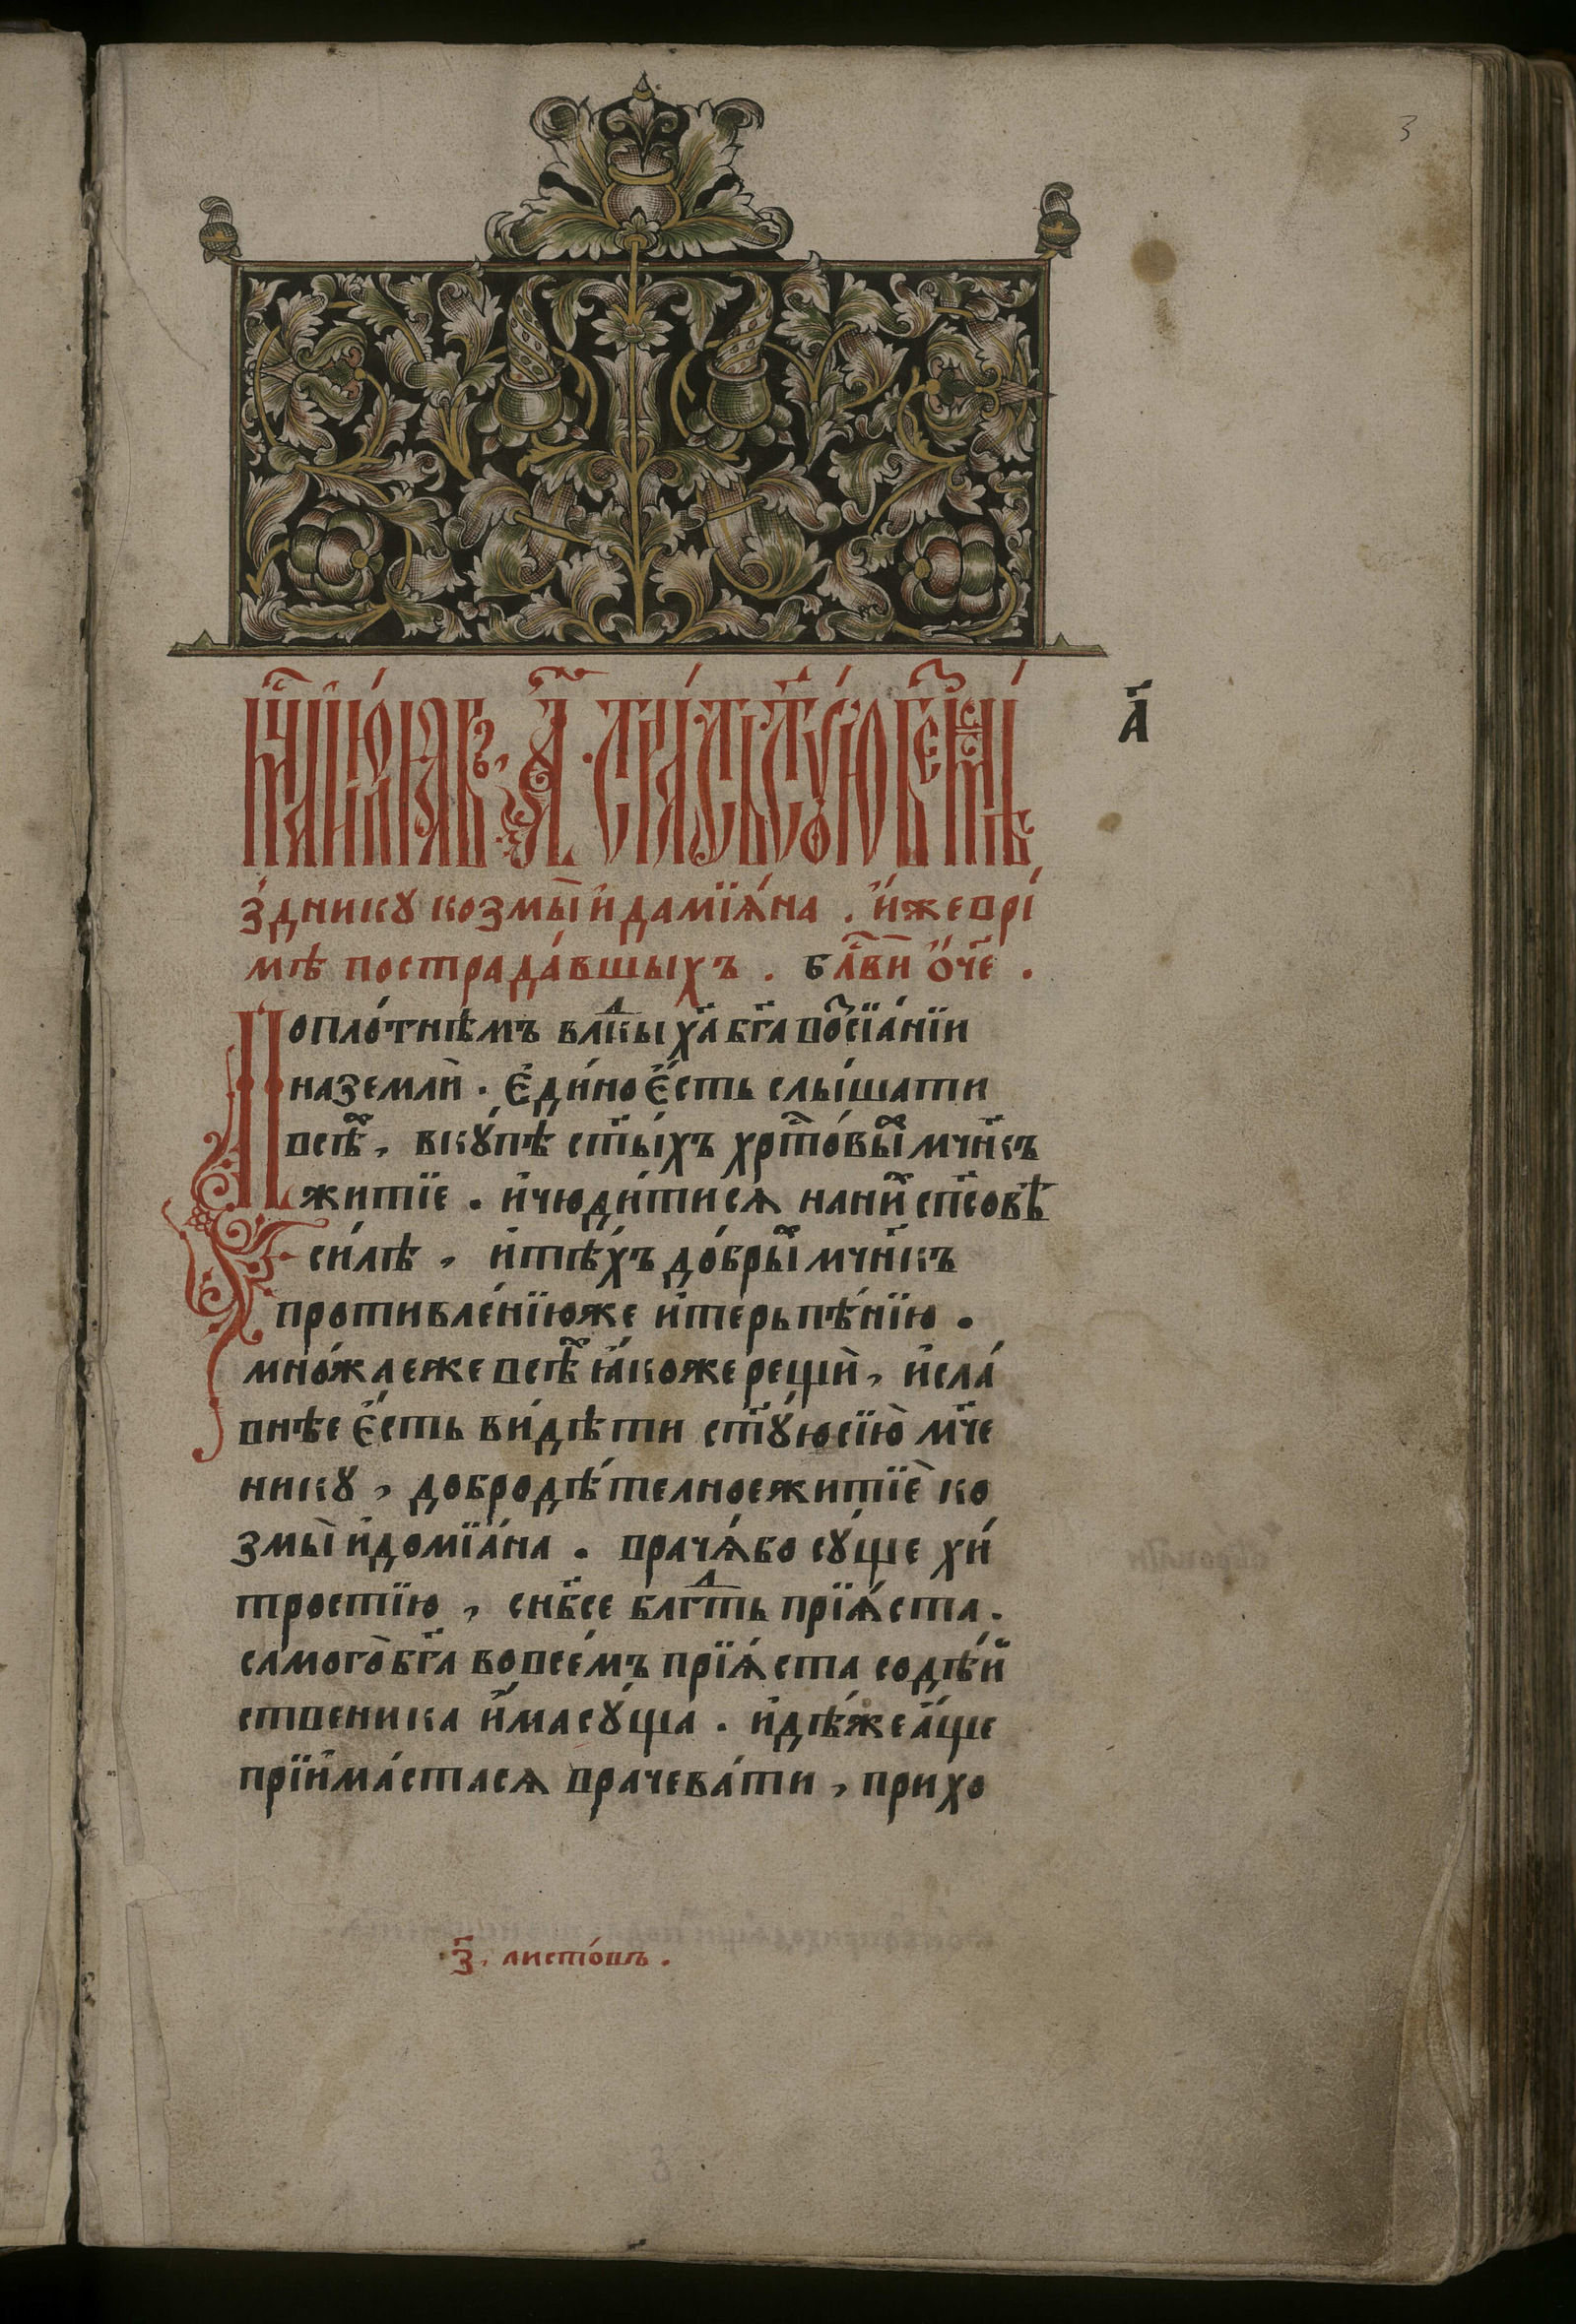 3
мц҃а і҆ю́лѧ въ, а҃. стра́сть ст҃у́ю безме́
а҃
здникꙋ козмы̀ и҆ дамїѧ́на . и҆́же в рі́
мѣ пострада́вшыхъ . бл҃ви ѻ҆́ч҃е .
По пло́тнѣмъ влⷣкы ха҃ бг҃а восїѧ́нїи
на землѝ . є҆ди́но є҆́сть слы́шати
всѣⷯ, вкꙋ́пѣ ст҃ы́хъ хрⷭ҇то́выⷯ мч҃нкъ
житїе . и҆ чюди́тисѧ на ниⷯ сп҃совѣ
си́лѣ , и҆ тѣ́хъ до́брыⷯ мч҃нкъ
противле́нїю же и҆ терьпѣ́нїю .
мно́жае же всѣⷯ ꙗ҆́коже рещѝ, и҆ сла́
внѣе є҆́сть ви́дѣти ст҃ꙋ́ю сїю̀ мч҃е
никꙋ , добродѣ́телное житїѐ ко
змы̀ и҆ домїа́на . врачѧ́ бо сꙋ́ще хи́
тростїю , с нб҃се блгⷣть прїѧ́ста .
самого̀ бг҃а во все́мъ прїѧ́ста содѣ́й
ственика и҆́ма сꙋ́ща . и҆дѣ́же а҆́ще
прїима́стасѧ врачева́ти , прихо
з҃, листо́въ .